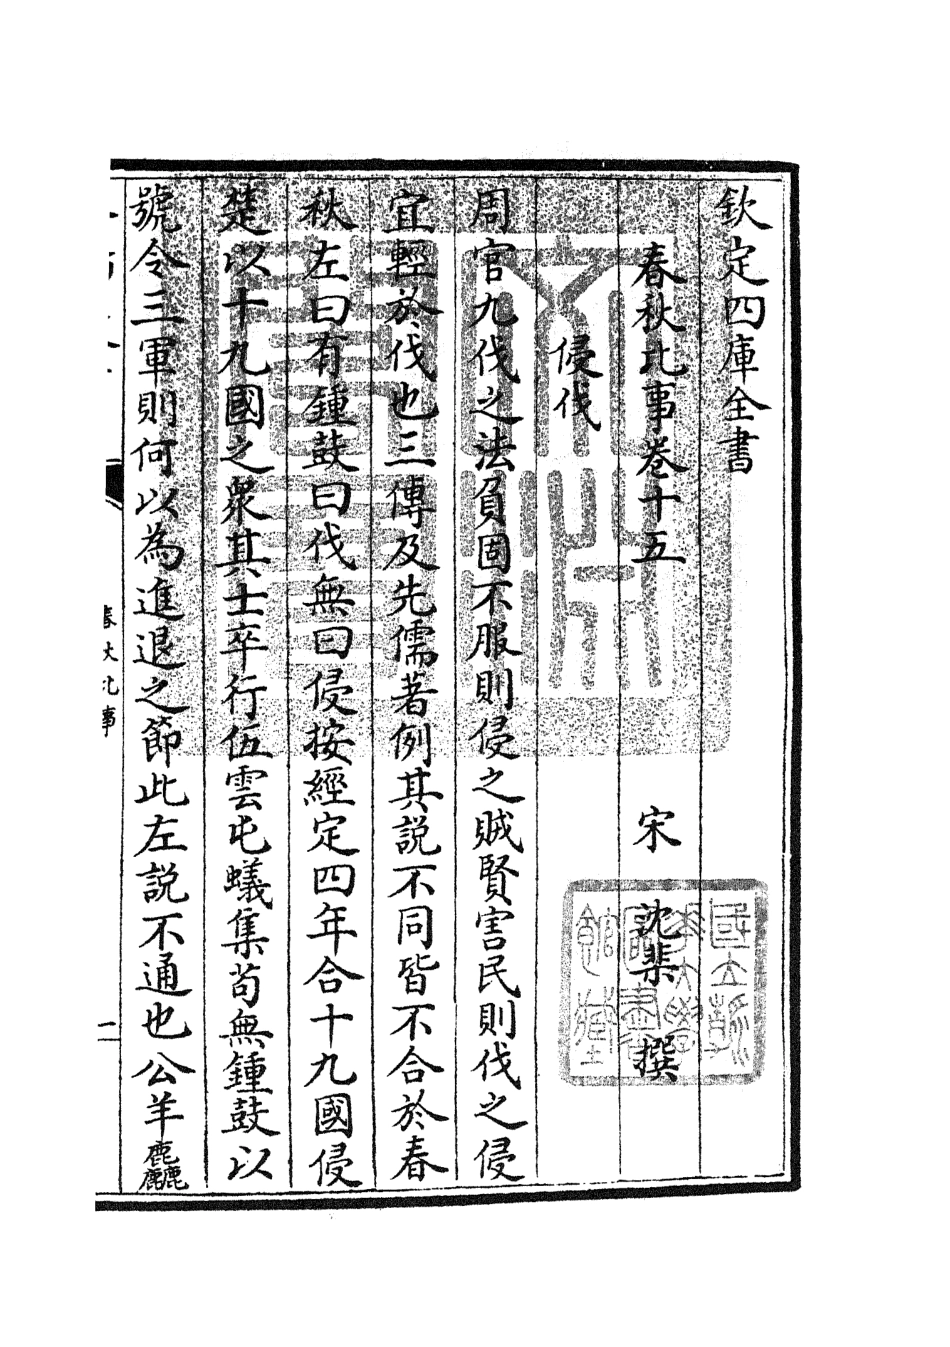 欽定四庫全書
春秋比事卷十五
宋　沈棐　撰
侵伐
周官九伐之法負固不服則侵之賊賢害民則伐之侵
宜輕於伐也三傳及先儒著例其説不同皆不合於春
秋左曰有鍾鼓曰伐無曰侵按經定四年合十九國侵
楚以十九國之衆其士卒行伍雲屯蟻集茍無鍾鼓以
號令三軍則何以為進退之節此左説不通也公羊麤
春秋比事